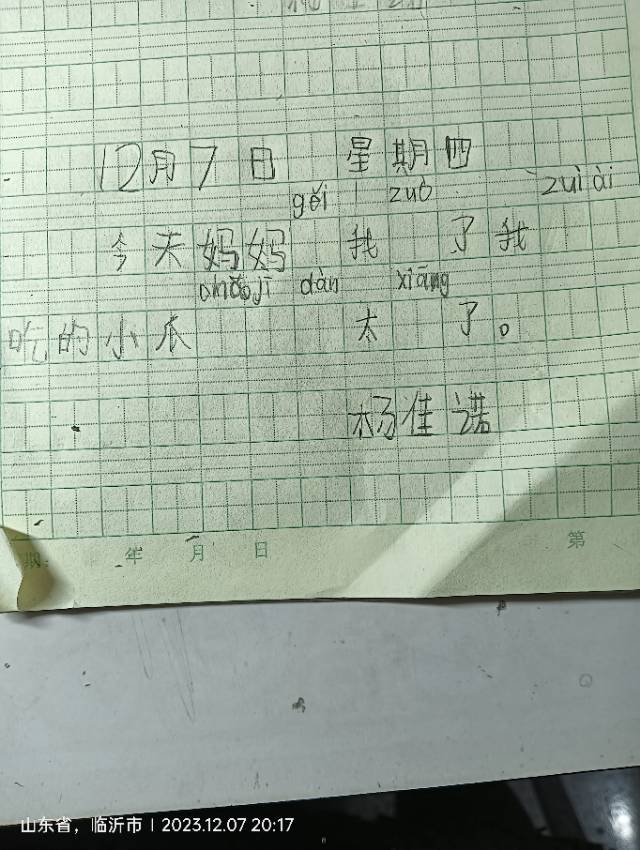 12月7日 星期四
gěi zuò zuì ài
今天妈妈 我 了我
mǎo jī dàn xiāng
吃的小瓜 太 了。
杨佳诺
期: 年 月 日 第
山东省，临沂市 | 2023.12.07 20:17